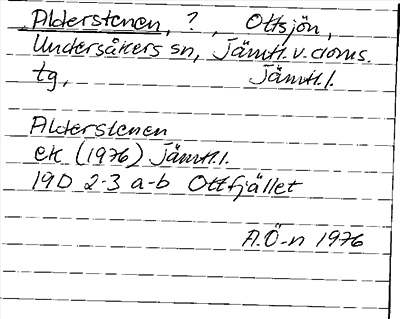 Alderstenen, ?, Ottsjön,
Undersåkers sn, Jämtl. v. doms.
tg, Jämtl. l.
Alderstenen
ek (1976) Jämtl. l.
19D 2-3 a-b Ottfjället
A.Ö-n 1976